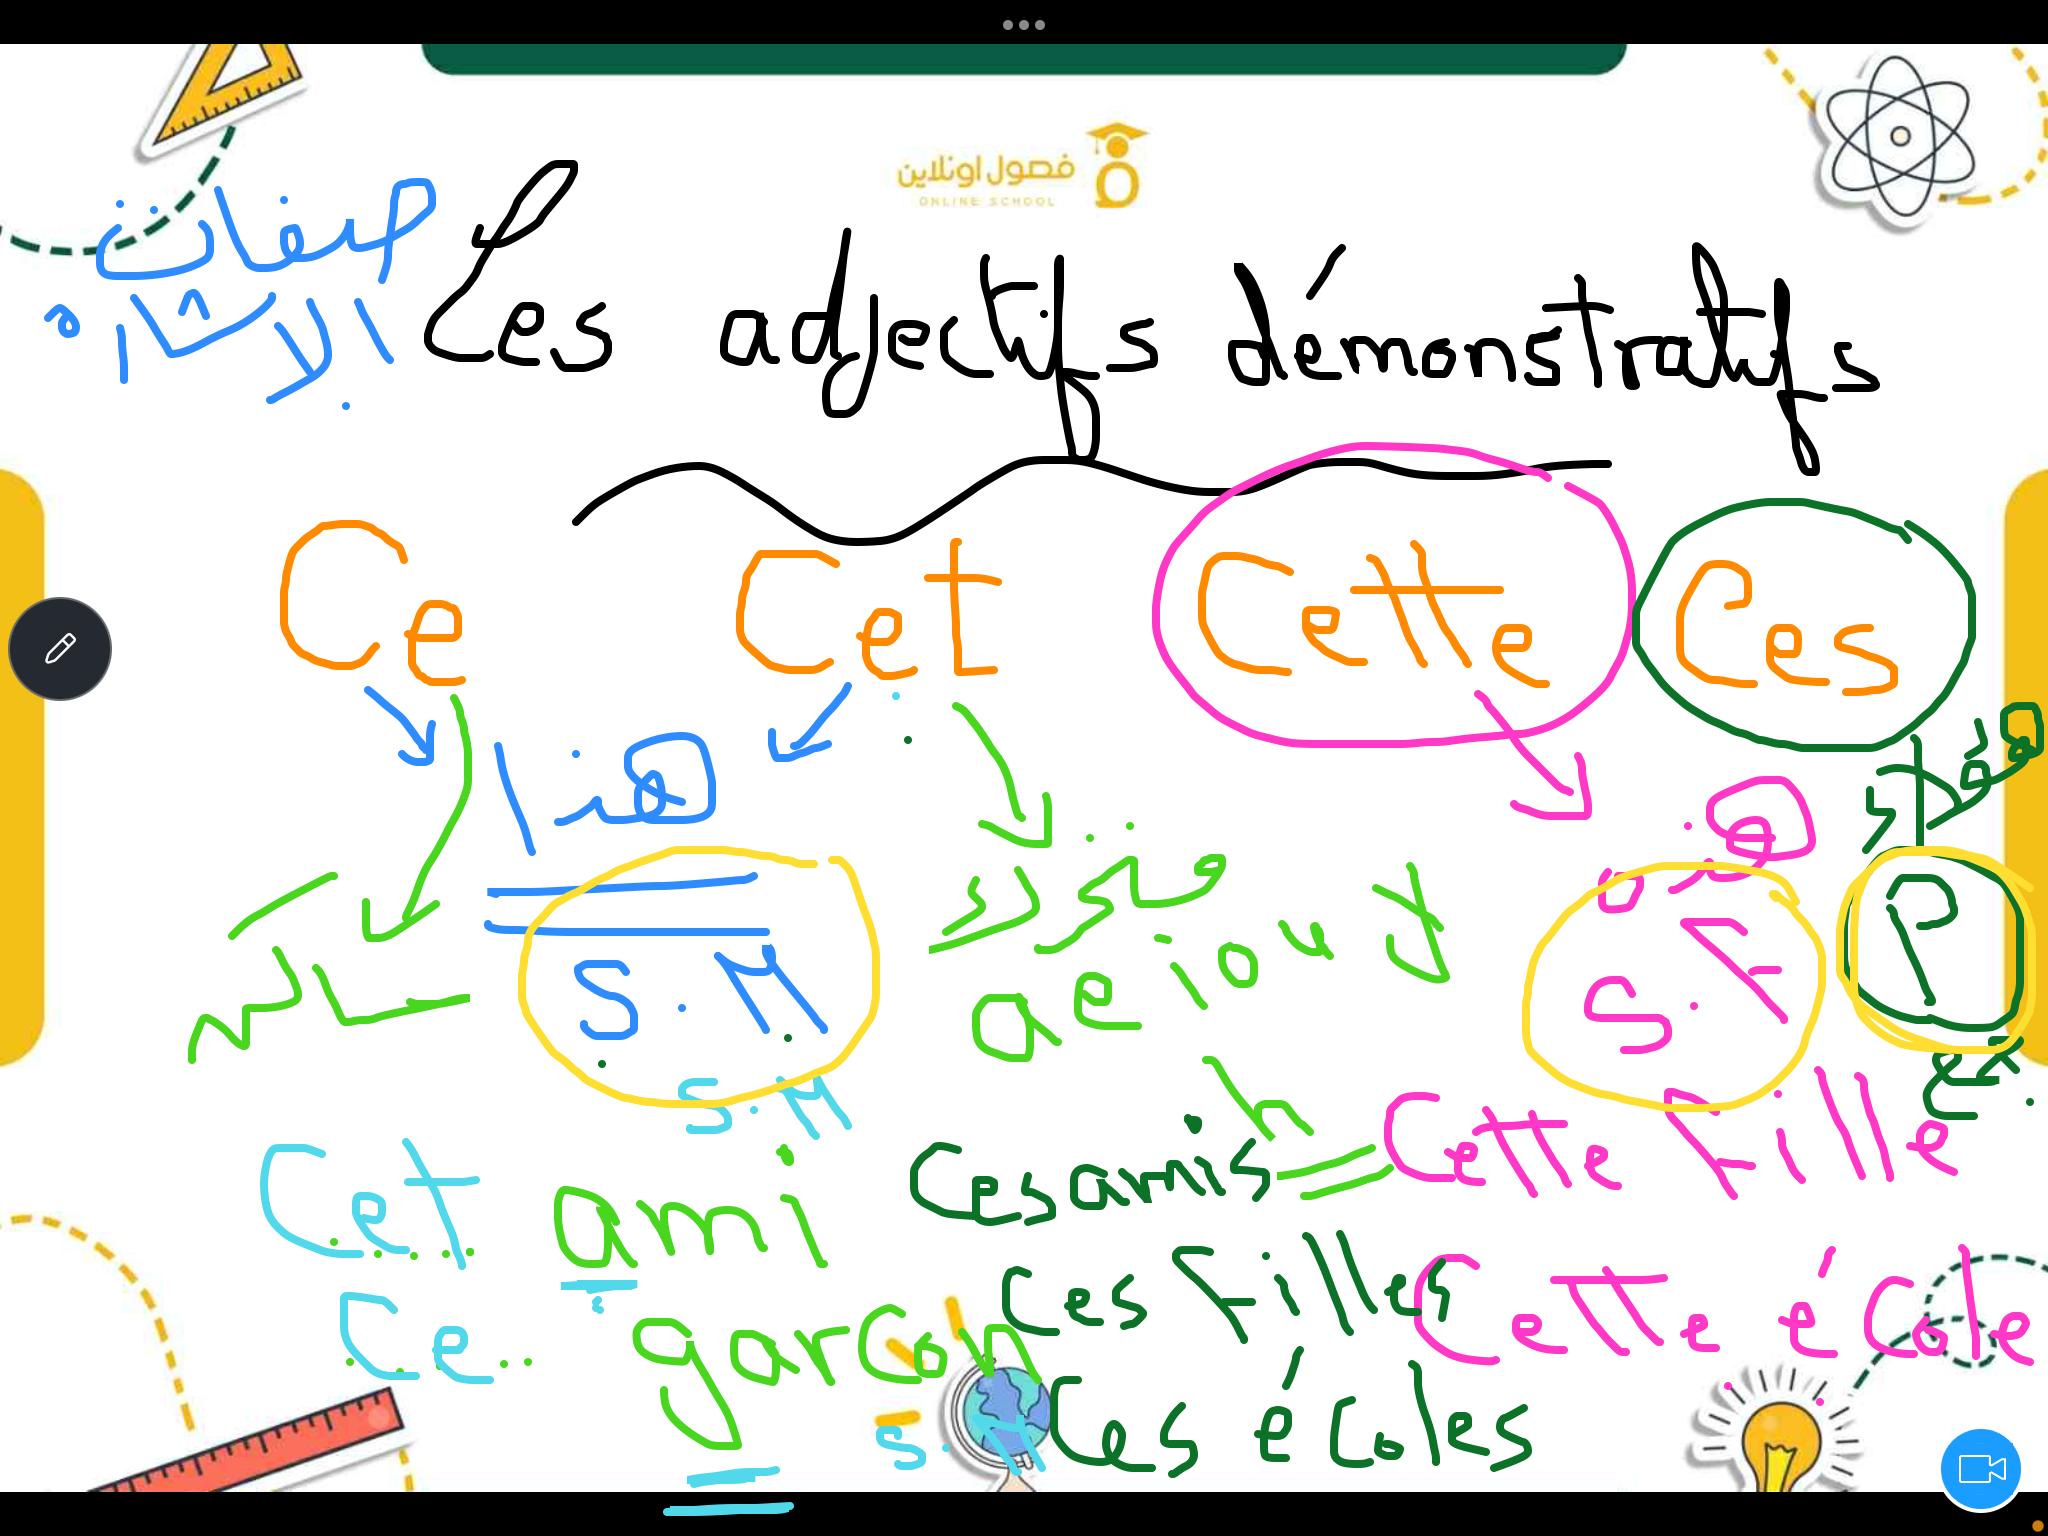 فصول اونلاين
ONLINE SCHOOL
صفات
الاشارة
Les adjectifs démonstratifs
Ce Cet Cette Ces
هذا
هذه
S.M
S.F
P
متحرك
ساكن
a e i o u y
h
S.M
ex.
Cet ami
Ces amis
Cette fille
Ce garcon
Ces filles
Cette école
S.M
Ces écoles